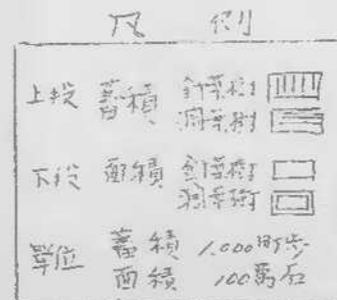 凡例
上段 蓄積 針葉樹
濶葉樹
下段 面積 針葉樹
濶葉樹
單位 蓄積 1,000町歩
面積 100萬石